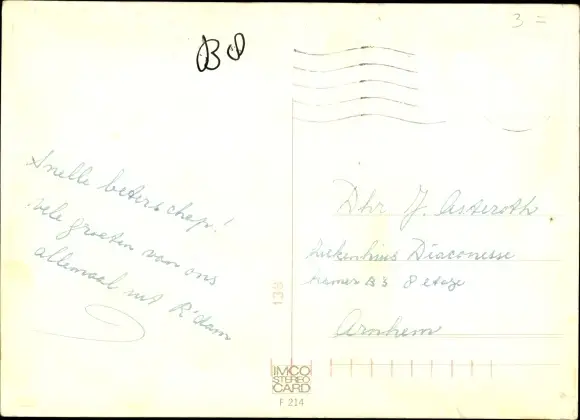 3 =
B8
Snelle beterschap!
vele groeten van ons
allemaal uit R'dam
Dhr J. Asteroth
Ziekenhuis Diaconesse
kamer B3 8 etage
Arnhem
138
IMCO
STEREO
CARD
F 214